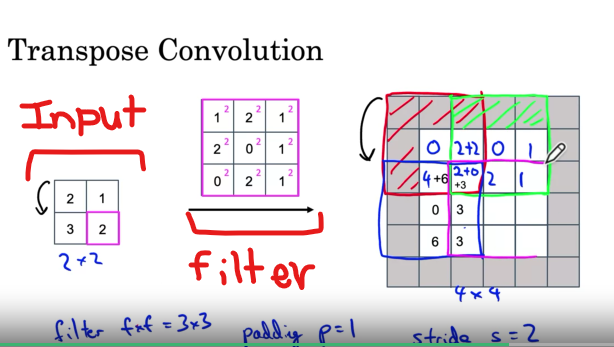 Transpose Convolution
Input
2 1
3 2
2x2
1² 2² 1²
2² 0² 1²
0² 2² 1²
filter
0 2+2 0 1
4+6 2+0+3 2 1
0 3
6 3
4x4
filter fxf = 3x3
paddig p=1
stride s=2